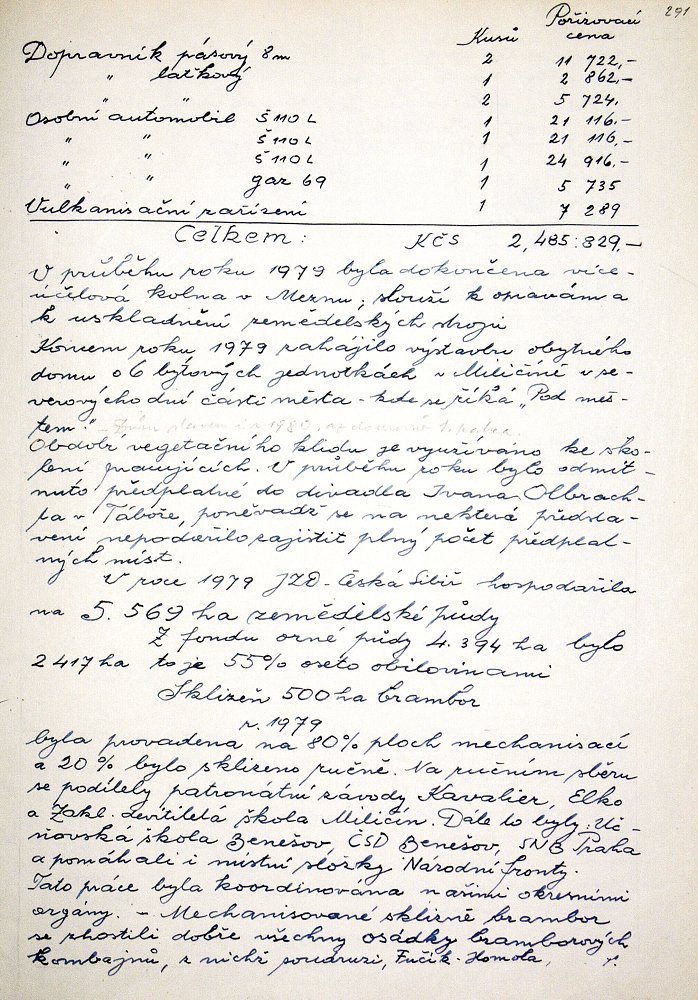 291
Kusů Pořizovací cena
Dopravník pásový 8m 2 11 722,-
" laťkový 1 2 862,-
" " 2 5 724.
Osobní automobil Š 110 L 1 21 116.-
" " Š 110 L 1 21 116,-
" " Š 110 L 1 24 916,-
" " gaz 69 1 5 735
Vulkanisační zařízení 1 7 289
Celkem: KČS 2,485.829,-
V průběhu roku 1979 byla dokončena více-
účelová kolna v Meznu, slouží k opravám a
k uskladnění zemědělských strojů
Koncem roku 1979 zahájilo výstavbu obytného
domu o 6 bytových jednotkách v Miličíně v se-
verovýchodní části města - kde se říká "Pod měs-
tem."
Období vegetačního klidu je využíváno ke ško-
lení pracujících. V průběhu roku bylo odmít-
nuto předplatné do divadla Ivana Olbrach-
ta v Táboře, poněvadž se na některá předsta-
vení nepodařilo zajistit plný počet předplat-
ných míst.
V roce 1979 JZD - Česká Sibiř hospodařila
na 5.569 ha zemědělské půdy
Z fondu orné půdy 4.394 ha bylo
2417 ha to je 55% oseto obilovinami
Sklizeň 500 ha brambor
r. 1979
byla provadena na 80% ploch mechanisací
a 20% bylo sklizeno ručně. Na ručním sběru
se podílely patronátní závody Kavalier, Elko
a Zákl. devítiletá škola Miličín. Dále to byly: Uč-
ňovská škola Benešov, ČSD Benešov, SNB Praha
a pomáhali i místní složky Národní fronty.
Tato práce byla koordinována našimi okresními
orgány. - Mechanisované sklizně brambor
se zhostili dobře všechny osádky bramborových
kombajnů, z nichž soudruzi, Fučík - Homola,